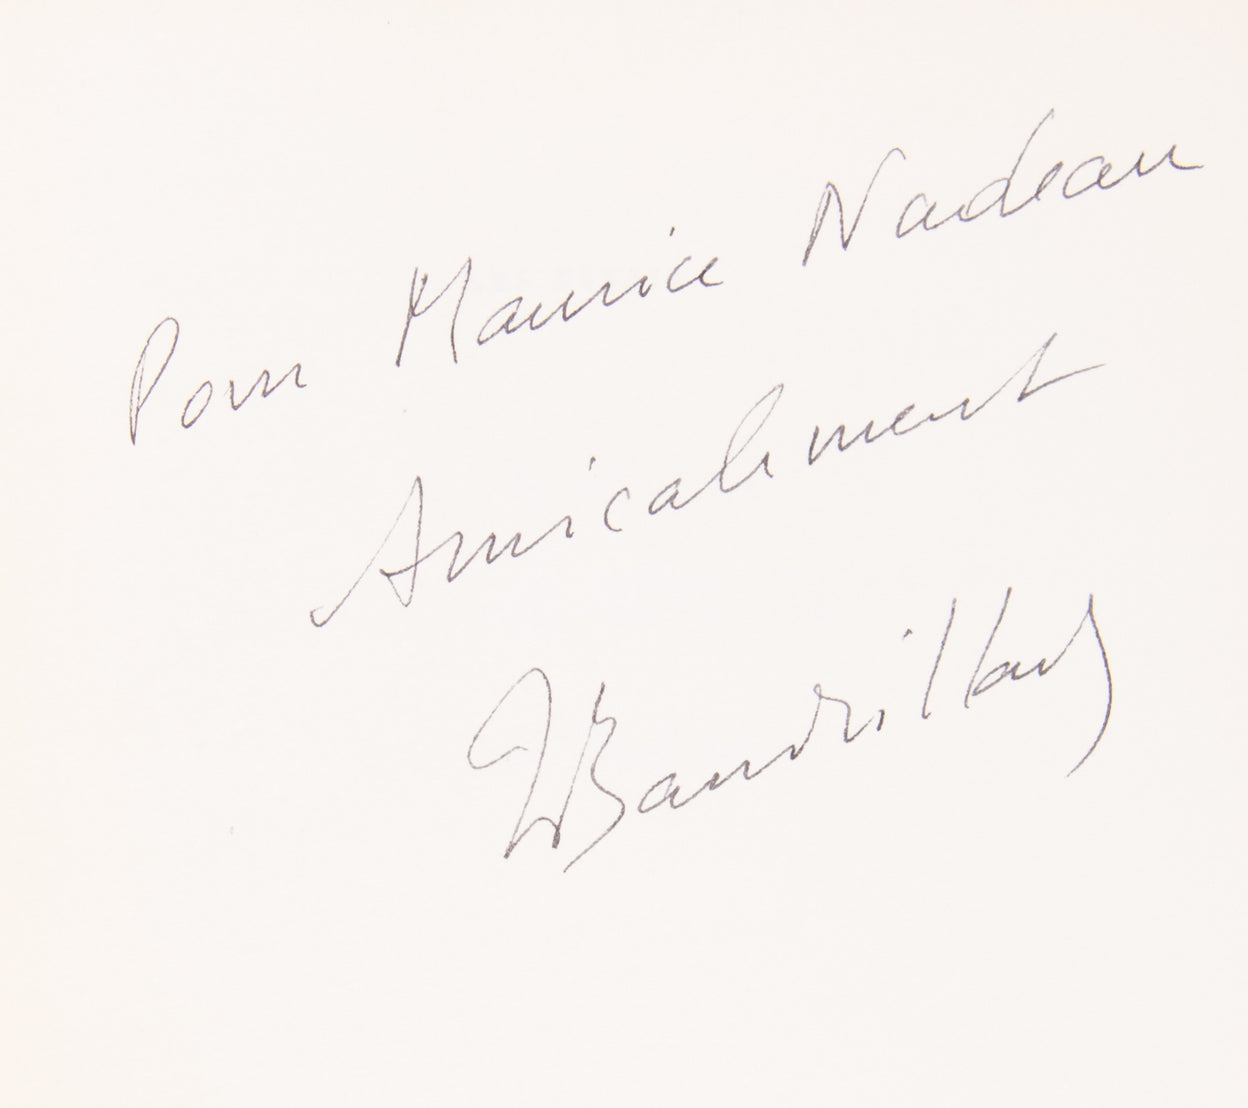 Pour Maurice Nadeau
Amicalement
JBaudrillard